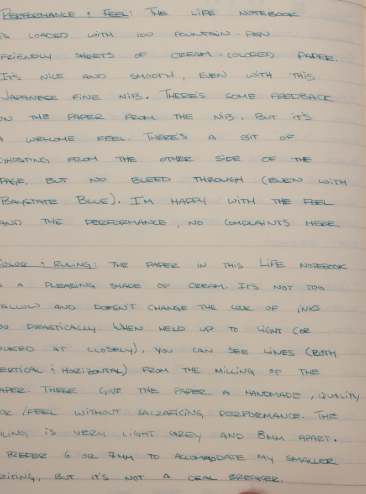 PERFORMANCE & FEEL: THE LIFE NOTEBOOK
IS LOADED WITH 100 FOUNTAIN-PEN
FRIENDLY SHEETS OF CREAM-COLORED PAPER.
IT'S NICE AND SMOOTH, EVEN WITH THIS
JAPANESE FINE NIB. THERE'S SOME FEEDBACK
ON THE PAPER FROM THE NIB, BUT IT'S
A WELCOME FEEL. THERE'S A BIT OF
GHOSTING FROM THE OTHER SIDE OF THE
PAGE, BUT NO BLEED THROUGH (EVEN WITH
BAYSTATE BLUE). I'M HAPPY WITH THE FEEL
AND THE PERFORMANCE, NO COMPLAINTS HERE.
COLOR & RULING: THE PAPER IN THIS LIFE NOTEBOOK
IS A PLEASING SHADE OF CREAM. IT'S NOT TOO
YELLOW AND DOESN'T CHANGE THE LOOK OF INKS
TOO DRASTICALLY. WHEN HELD UP TO LIGHT (OR
LOOKED AT CLOSELY), YOU CAN SEE LINES (BOTH
VERTICAL & HORIZONTAL) FROM THE MILLING OF THE
PAPER. THESE GIVE THE PAPER A HANDMADE, QUALITY
LOOK/FEEL WITHOUT SACRAFICING PERFORMANCE. THE
RULING IS VERY LIGHT GREY AND 8MM APART.
I PREFER 6 OR 7MM TO ACCOMODATE MY SMALLER
WRITING, BUT IT'S NOT A DEAL BREAKER.